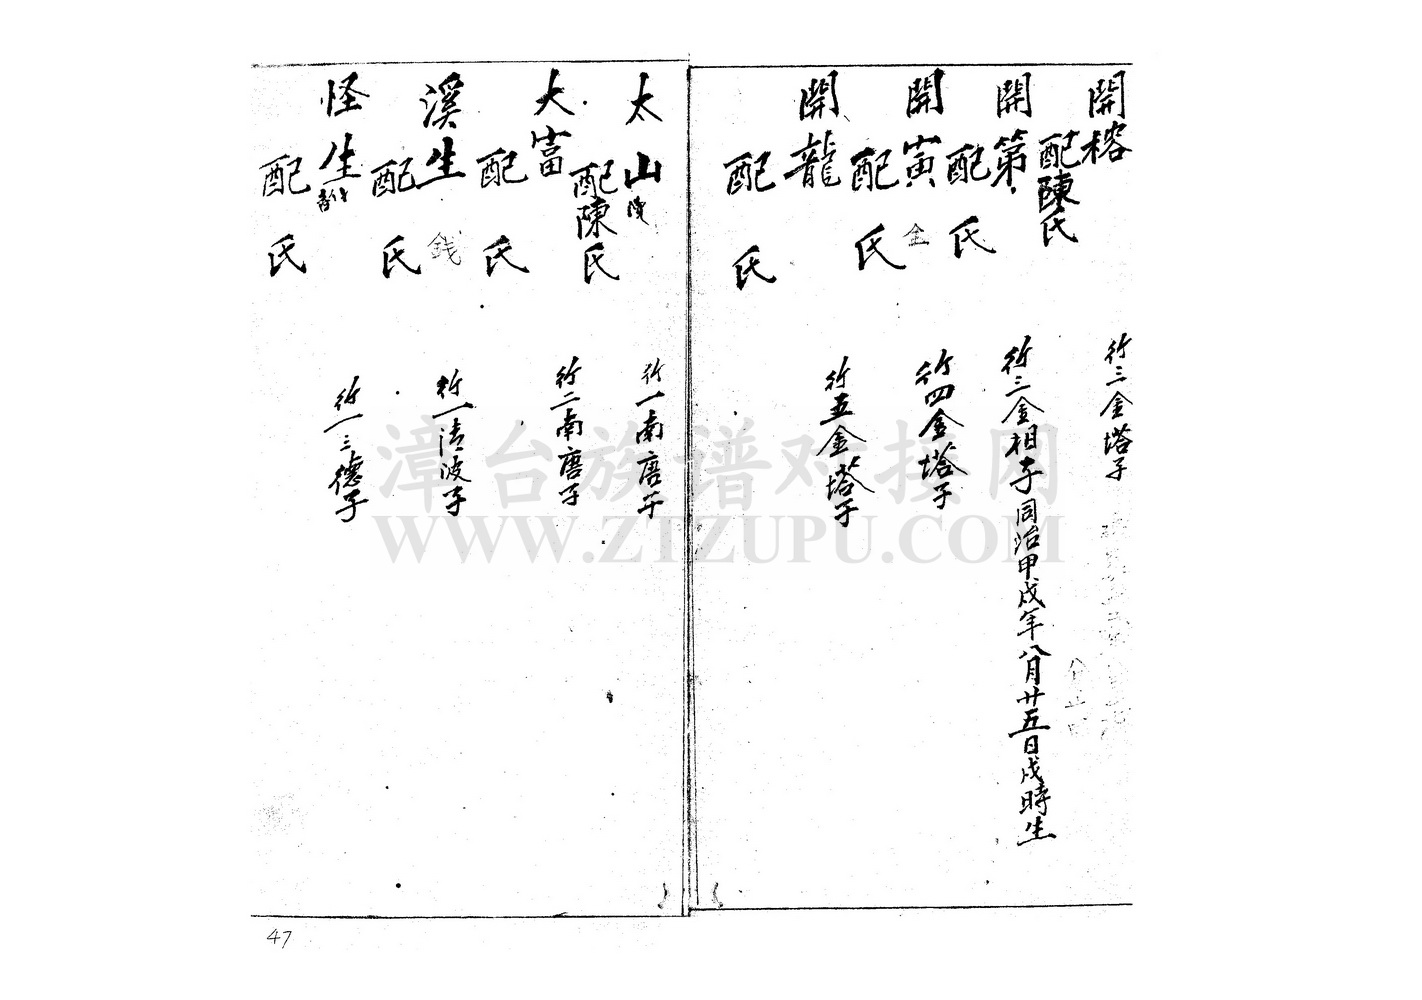 開榕
配陳氏
行三金塔子
開第
配氏
行三金相子同治甲戌年八月廿五日戌時生
開寅
金
配氏
行四金塔子
開龍
配氏
行五金塔子
太山
配陳氏
行一南唐子
大富
配氏
行二南唐子
溪生
錢
配氏
行一清波子
怪生
配氏
行一三德子
漳台族谱对接网
WWW.ZTZUPU.COM
47